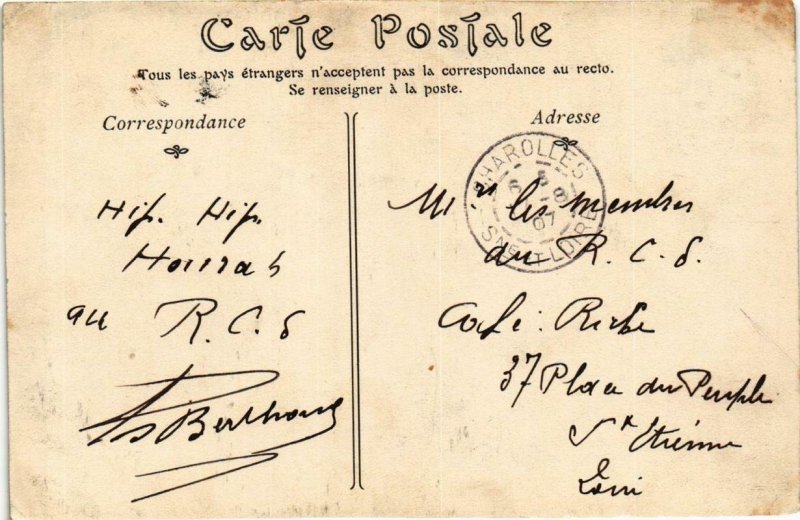 Carte Postale
Tous les pays étrangers n'acceptent pas la correspondance au recto.
Se renseigner à la poste.
Correspondance
Adresse
Hip. Hip.
Hourrah
au R.C.S
Berthoud
CHAROLLES
07
SNE ET LOIRE
Mrs les membres
du R.C.S.
Café Riche
37 Place du Peuple
St Etienne
Loire